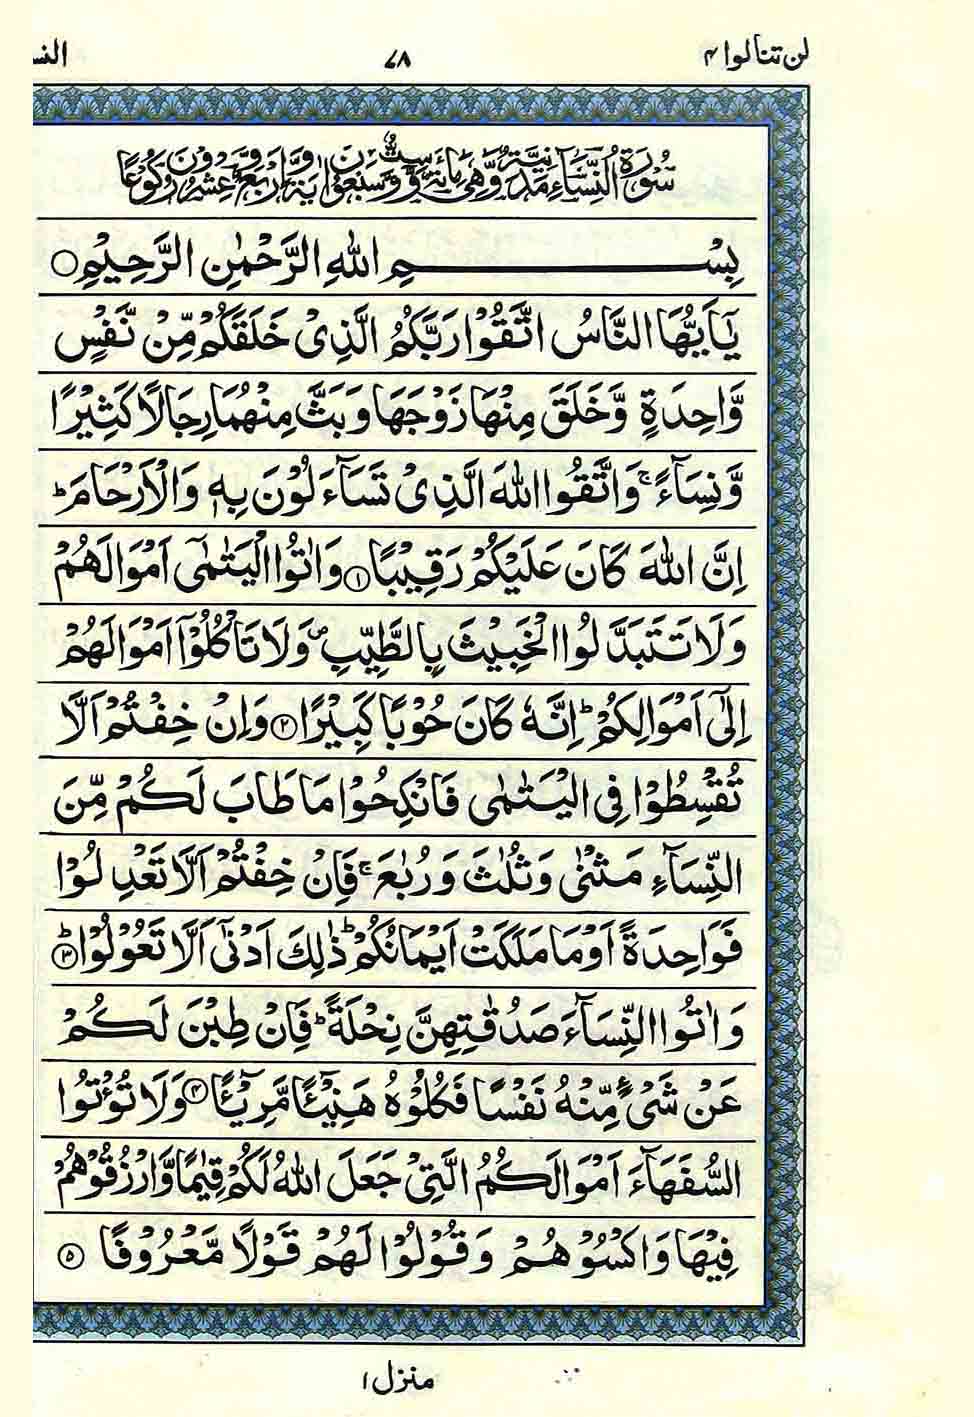 لن تنالوا ۴
۷۸
النس
سُوْرَةُ النِّسَآءِ مَدَنِيَّةٌ وَّهِيَ مِائَةٌ وَّسِتٌّ وَّسَبْعُوْنَ اٰيَةً وَّاَرْبَعٌ وَّعِشْرُوْنَ رُكُوْعًا
بِسْمِ اللّٰهِ الرَّحْمٰنِ الرَّحِيْمِ ○
يٰۤاَيُّهَا النَّاسُ اتَّقُوْا رَبَّكُمُ الَّذِىْ خَلَقَكُمْ مِّنْ نَّفْسٍ
وَّاحِدَةٍ وَّخَلَقَ مِنْهَا زَوْجَهَا وَبَثَّ مِنْهُمَا رِجَالًا كَثِيْرًا
وَّنِسَآءً ۚ وَاتَّقُوا اللّٰهَ الَّذِىْ تَسَآءَلُوْنَ بِهٖ وَالْاَرْحَامَ ؕ
اِنَّ اللّٰهَ كَانَ عَلَيْكُمْ رَقِيْبًا ۱ وَاٰتُوا الْيَتٰمٰٓى اَمْوَالَهُمْ
وَلَا تَتَبَدَّلُوا الْخَبِيْثَ بِالطَّيِّبِ ۪ وَلَا تَاْكُلُوْۤا اَمْوَالَهُمْ
اِلٰٓى اَمْوَالِكُمْ ؕ اِنَّهٗ كَانَ حُوْبًا كَبِيْرًا ۲ وَاِنْ خِفْتُمْ اَلَّا
تُقْسِطُوْا فِى الْيَتٰمٰى فَانْكِحُوْا مَا طَابَ لَكُمْ مِّنَ
النِّسَآءِ مَثْنٰى وَثُلٰثَ وَرُبٰعَ ۚ فَاِنْ خِفْتُمْ اَلَّا تَعْدِلُوْا
فَوَاحِدَةً اَوْ مَا مَلَكَتْ اَيْمَانُكُمْ ؕ ذٰلِكَ اَدْنٰٓى اَلَّا تَعُوْلُوْا ؕ ۳
وَاٰتُوا النِّسَآءَ صَدُقٰتِهِنَّ نِحْلَةً ؕ فَاِنْ طِبْنَ لَكُمْ
عَنْ شَىْءٍ مِّنْهُ نَفْسًا فَكُلُوْهُ هَنِيْٓئًا مَّرِيْٓئًا ۴ وَلَا تُؤْتُوا
السُّفَهَآءَ اَمْوَالَكُمُ الَّتِىْ جَعَلَ اللّٰهُ لَكُمْ قِيٰمًا وَّارْزُقُوْهُمْ
فِيْهَا وَاكْسُوْهُمْ وَقُوْلُوْا لَهُمْ قَوْلًا مَّعْرُوْفًا ۵
منزل ۱